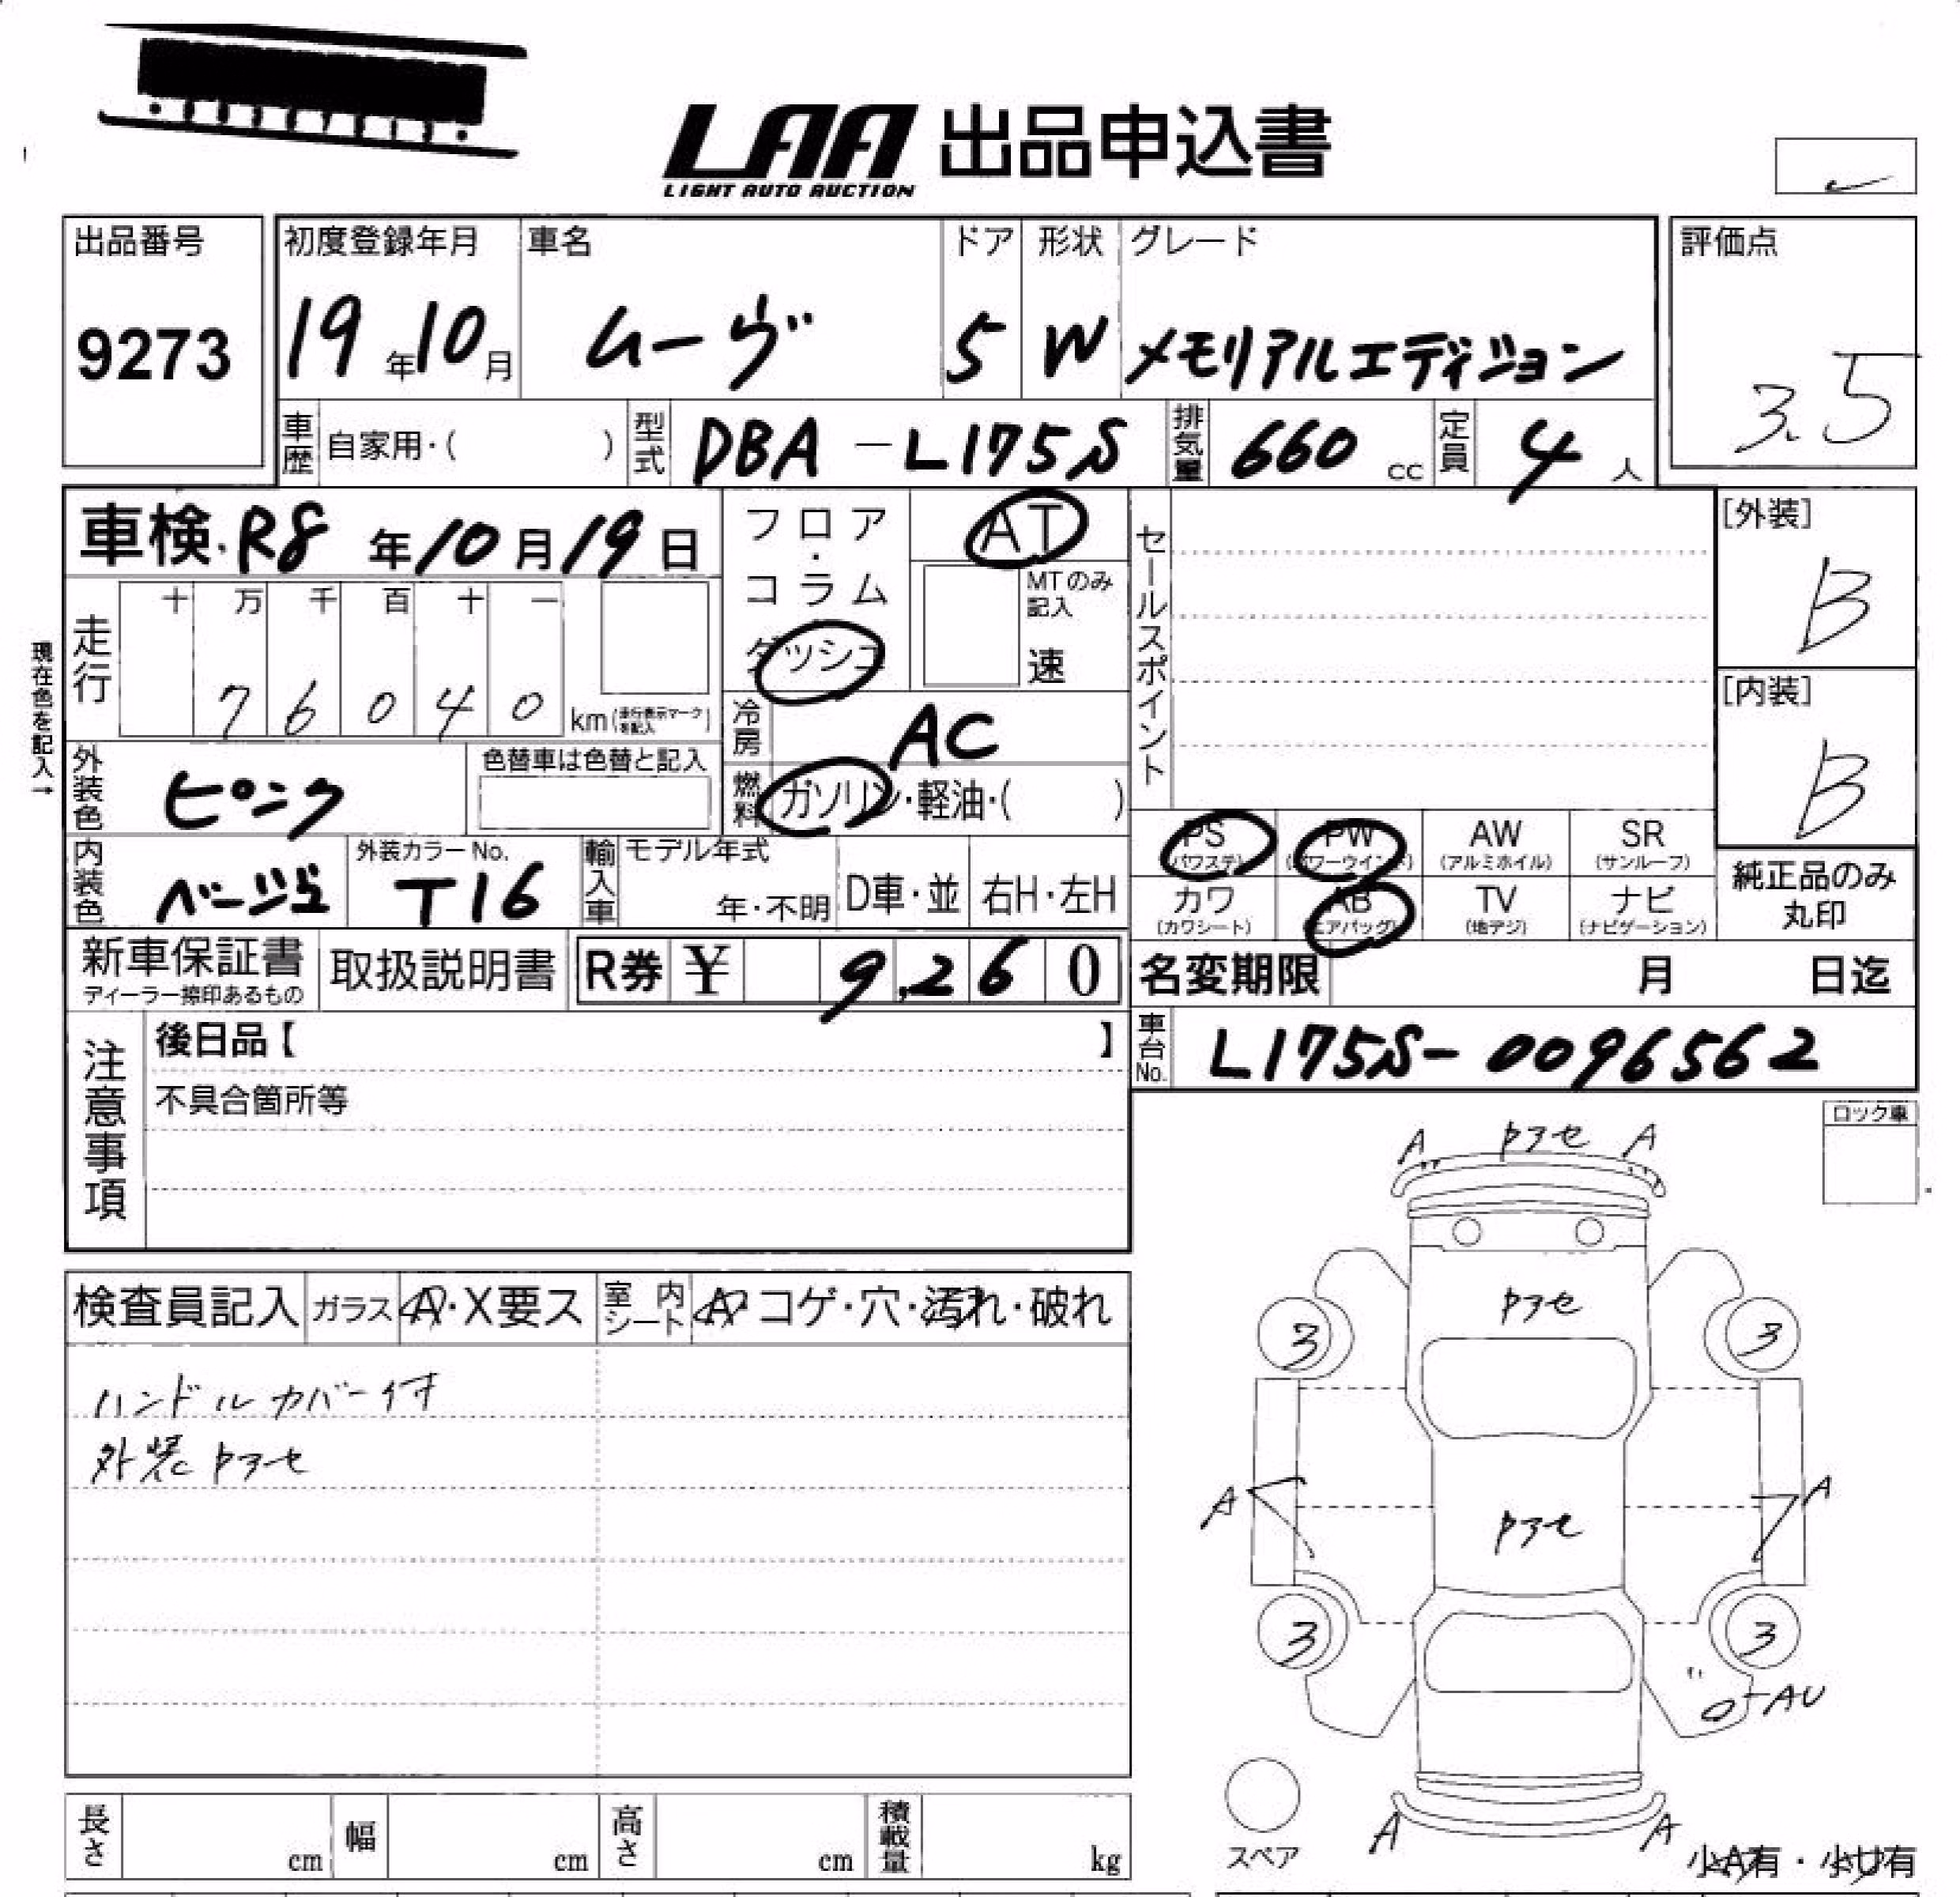 LAA 出品申込書
LIGHT AUTO AUCTION
出品番号
9273
初度登録年月 車名 ドア 形状 グレード
19年10月 ムーヴ 5 W メモリアルエディション
評価点
3.5
車歴 自家用・( ) 型式 DBA-L175S 排気量 660 cc 定員 4人
車検 R8年10月19日
フロア・コラム ダッシュ
AT
MTのみ記入
速
セールスポイント
[外装]
B
[内装]
B
現在色を記入→
走行 十 万 千 百 十 一
7 6 0 4 0 km (走行表示マークを記入)
冷房 AC
燃料 ガソリン・軽油・( )
外装色 ピンク 色替車は色替と記入
内装色 ベージュ 外装カラーNo. T16
輸入車 モデル年式 年・不明 D車・並 右H・左H
PS (パワステ) PW (パワーウインド) AW (アルミホイル) SR (サンルーフ)
カワ (カワシート) AB (エアバッグ) TV (地デジ) ナビ (ナビゲーション)
純正品のみ
丸印
新車保証書 取扱説明書 R券 ¥ 9,260
ディーラー捺印あるもの
名変期限 月 日迄
車台No. L175S-0096562
注意事項
後日品【 】
不具合箇所等
ロック車
検査員記入 ガラス A・X要ス 室内シート A・コゲ・穴・汚れ・破れ
ハンドルカバー付
外装 トアセ
A トアセ A
トアセ
3 3
A A
トアセ
3 3
AU
A A
スペア
小A有・小U有
長さ cm 幅 cm 高さ cm 積載量 kg